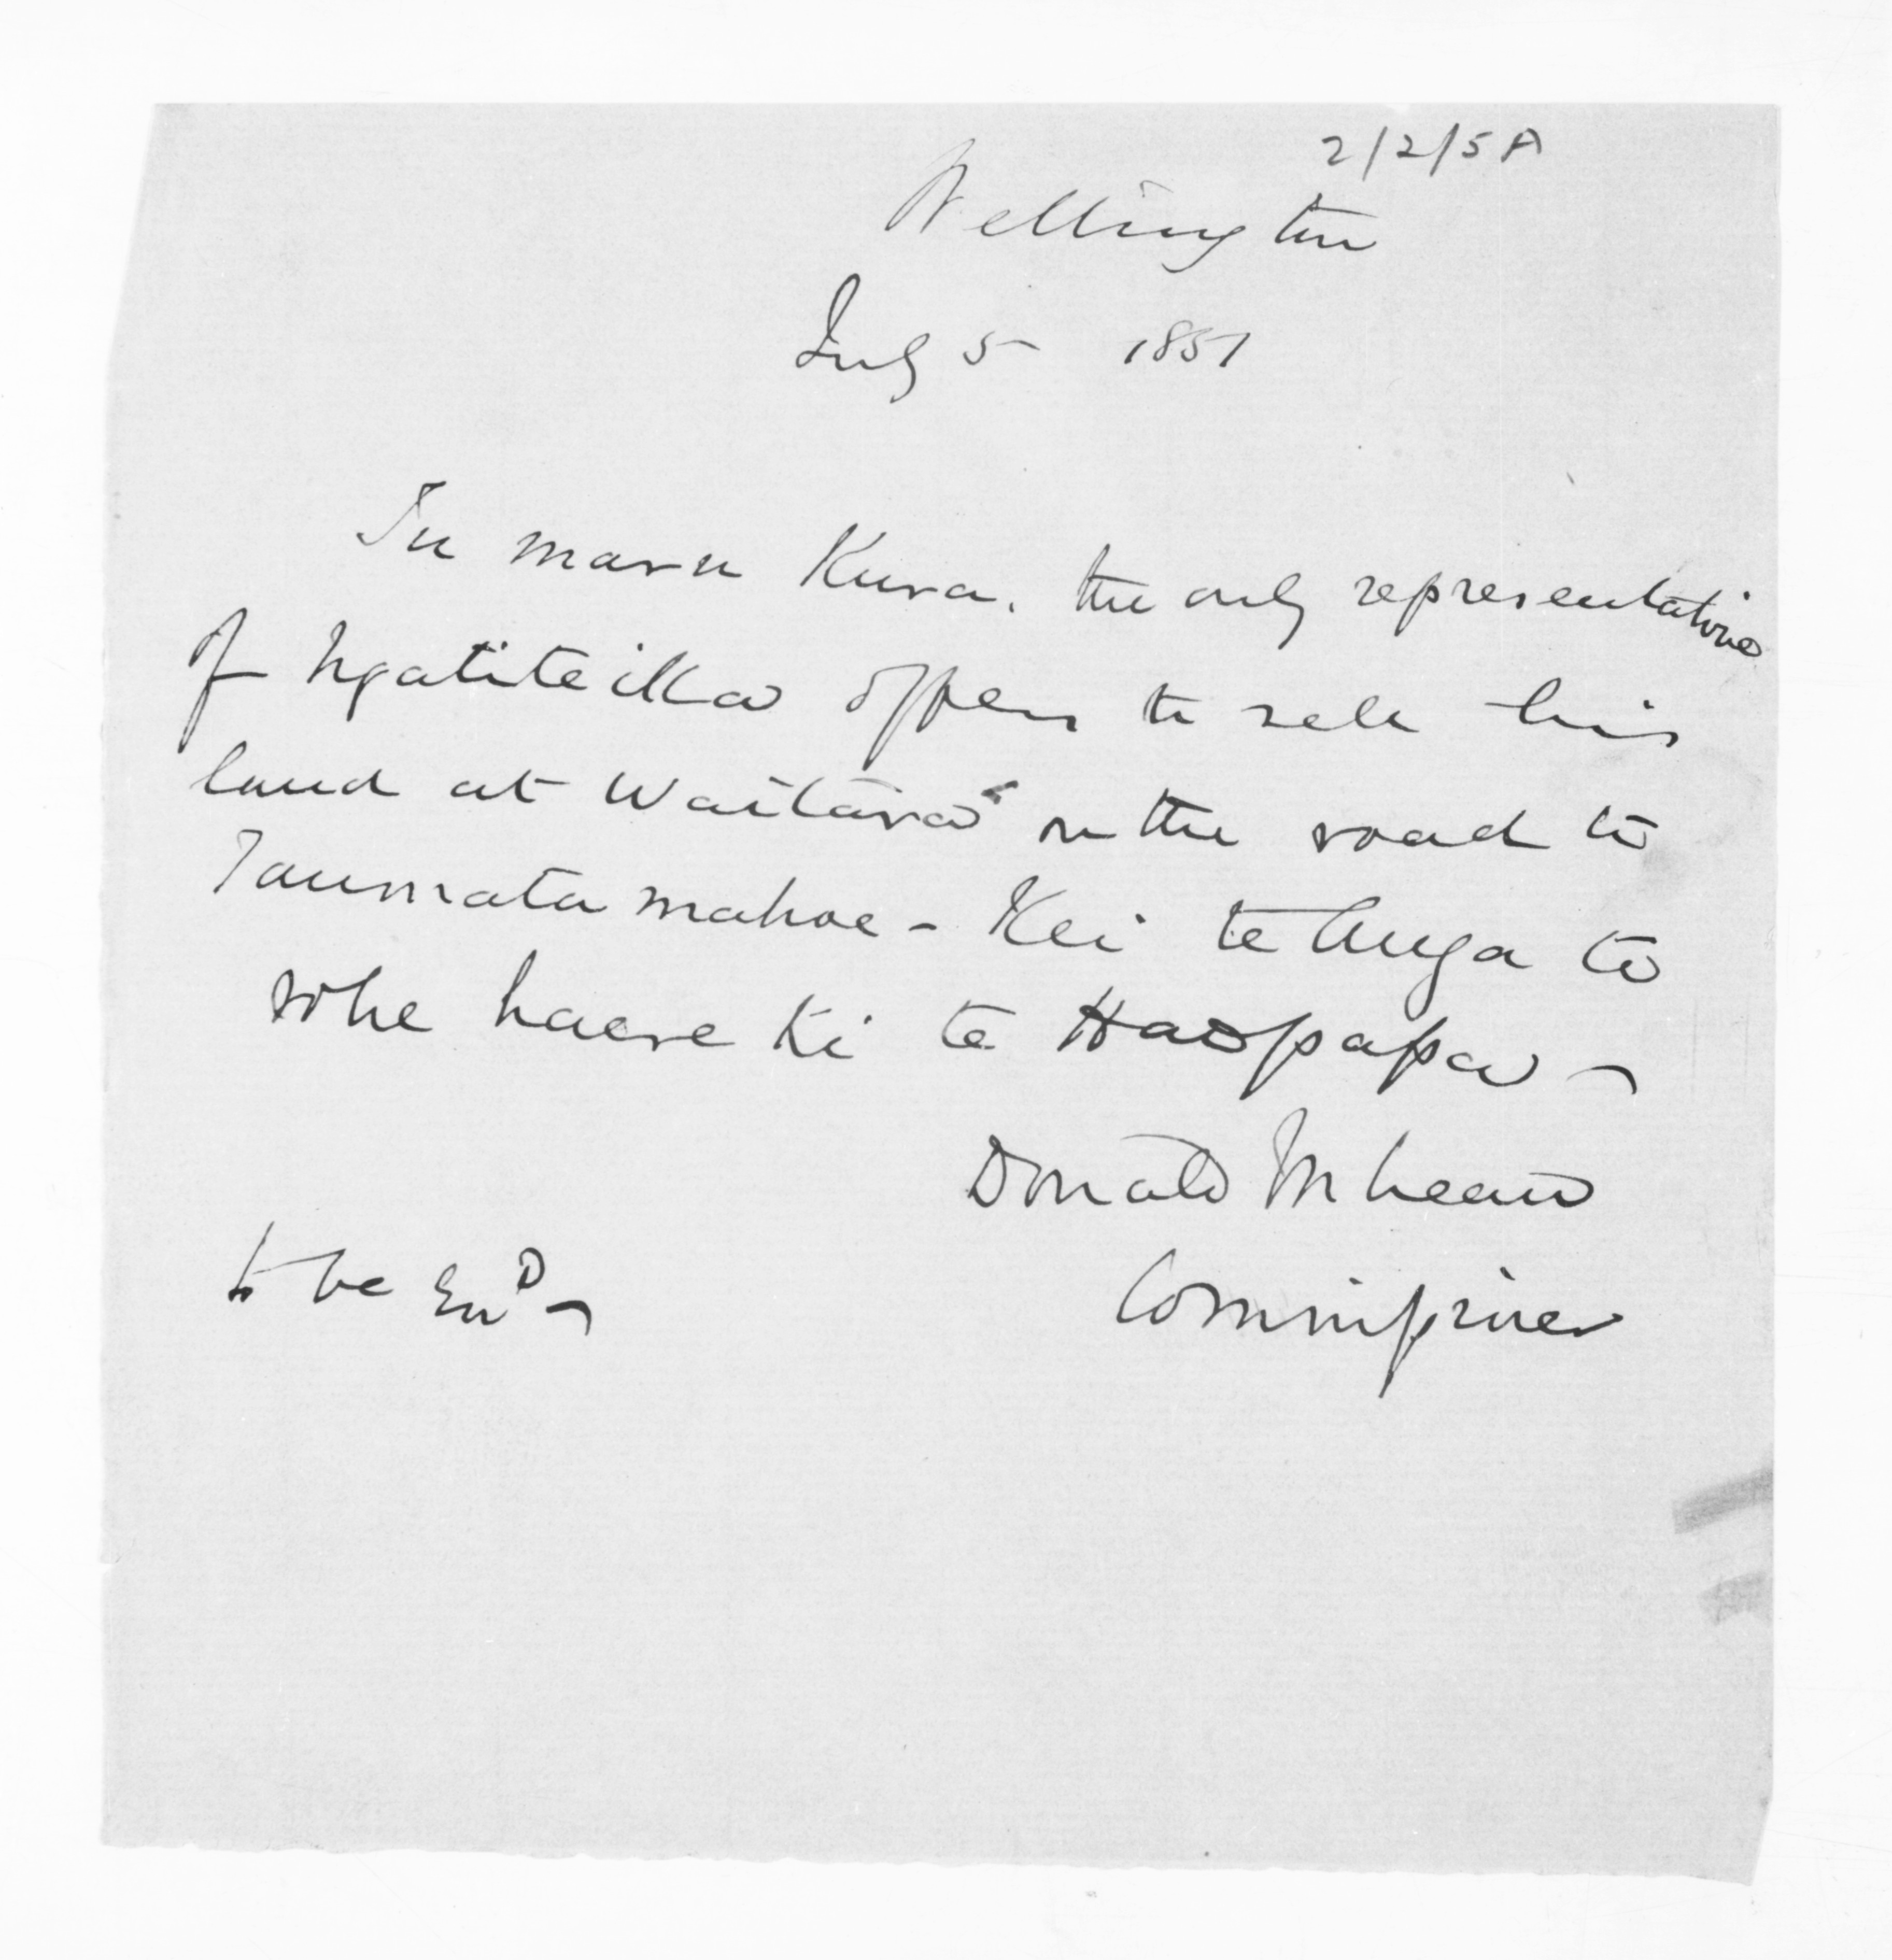 2/2/5A
Wellington
July 5 1851
Tu maru Kura. the only representative
of Ngatiteika offers to sell his
land at Waitara on the road to
Taumatamahoe - Kei te Anga to
rohe haere ki te Haopapa -
Donald McLean
Commissioner
to be End -